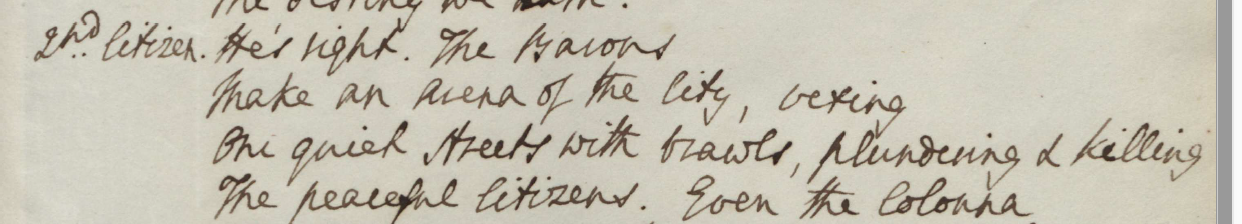 the destiny we
2nd Citizen. He's right. The Barons
Make an Arena of the City, vexing
Our quiet streets with brawls, plundering & killing
The peaceful Citizens. Even the Colonna